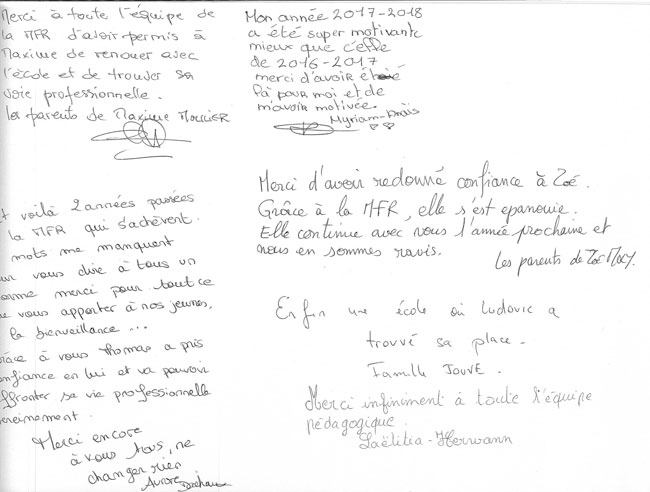 Merci à toute l'équipe de
la MFR d'avoir permis à
Maxime de renouer avec
l'école et de trouver sa
voie professionnelle.
les parents de Maxime
Mon année 2017-2018
a été super motivante
mieux que celle
de 2016-2017
merci d'avoir été
là pour moi et de
m'avoir motivée.
Myriam
voilà 2 années passées
la MFR qui s'achèvent.
mots me manquent
vous dire à tous un
merci pour tout ce
vous apporter à nos jeunes,
la bienveillance ...
à vous Thomas a pris
confiance en lui et va pouvoir
affronter sa vie professionnelle
sereinement.
Merci encore
à vous tous, ne
changer rien
Aurore
Merci d'avoir redonné confiance à Zoé.
Grâce à la MFR, elle s'est epanouie.
Elle continue avec vous l'année prochaine et
nous en sommes ravis.
les parents de Zoé
Enfin une école où Ludovic a
trouvé sa place.
Famille JOUVE.
Merci infiniment à toute l'équipe
pédagogique.
Laëtitia - Herwann